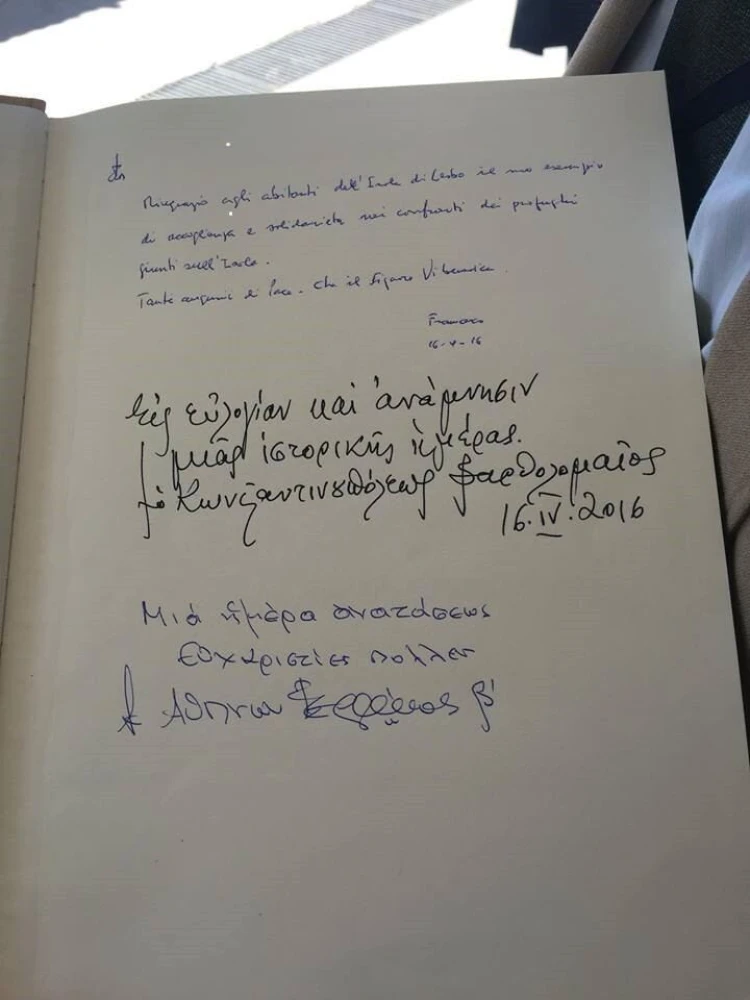 Ringrazio agli abitanti dell'Isola di Lesbo il suo esempio
di accoglienza e solidarietà nei confronti dei profughi
giunti sull'Isola.
Tanti auguri di Pace. Che il Signore Vi benedica.
Francesco
16-4-16
Εἰς εὐλογίαν καὶ ἀνάμνησιν
μιᾶς ἱστορικῆς ἡμέρας.
ὁ Κωνσταντινουπόλεως Βαρθολομαῖος
16.IV.2016
Μιά ἡμέρα
Εὐχαριστίες πολλές
Ἀθηνῶν β'